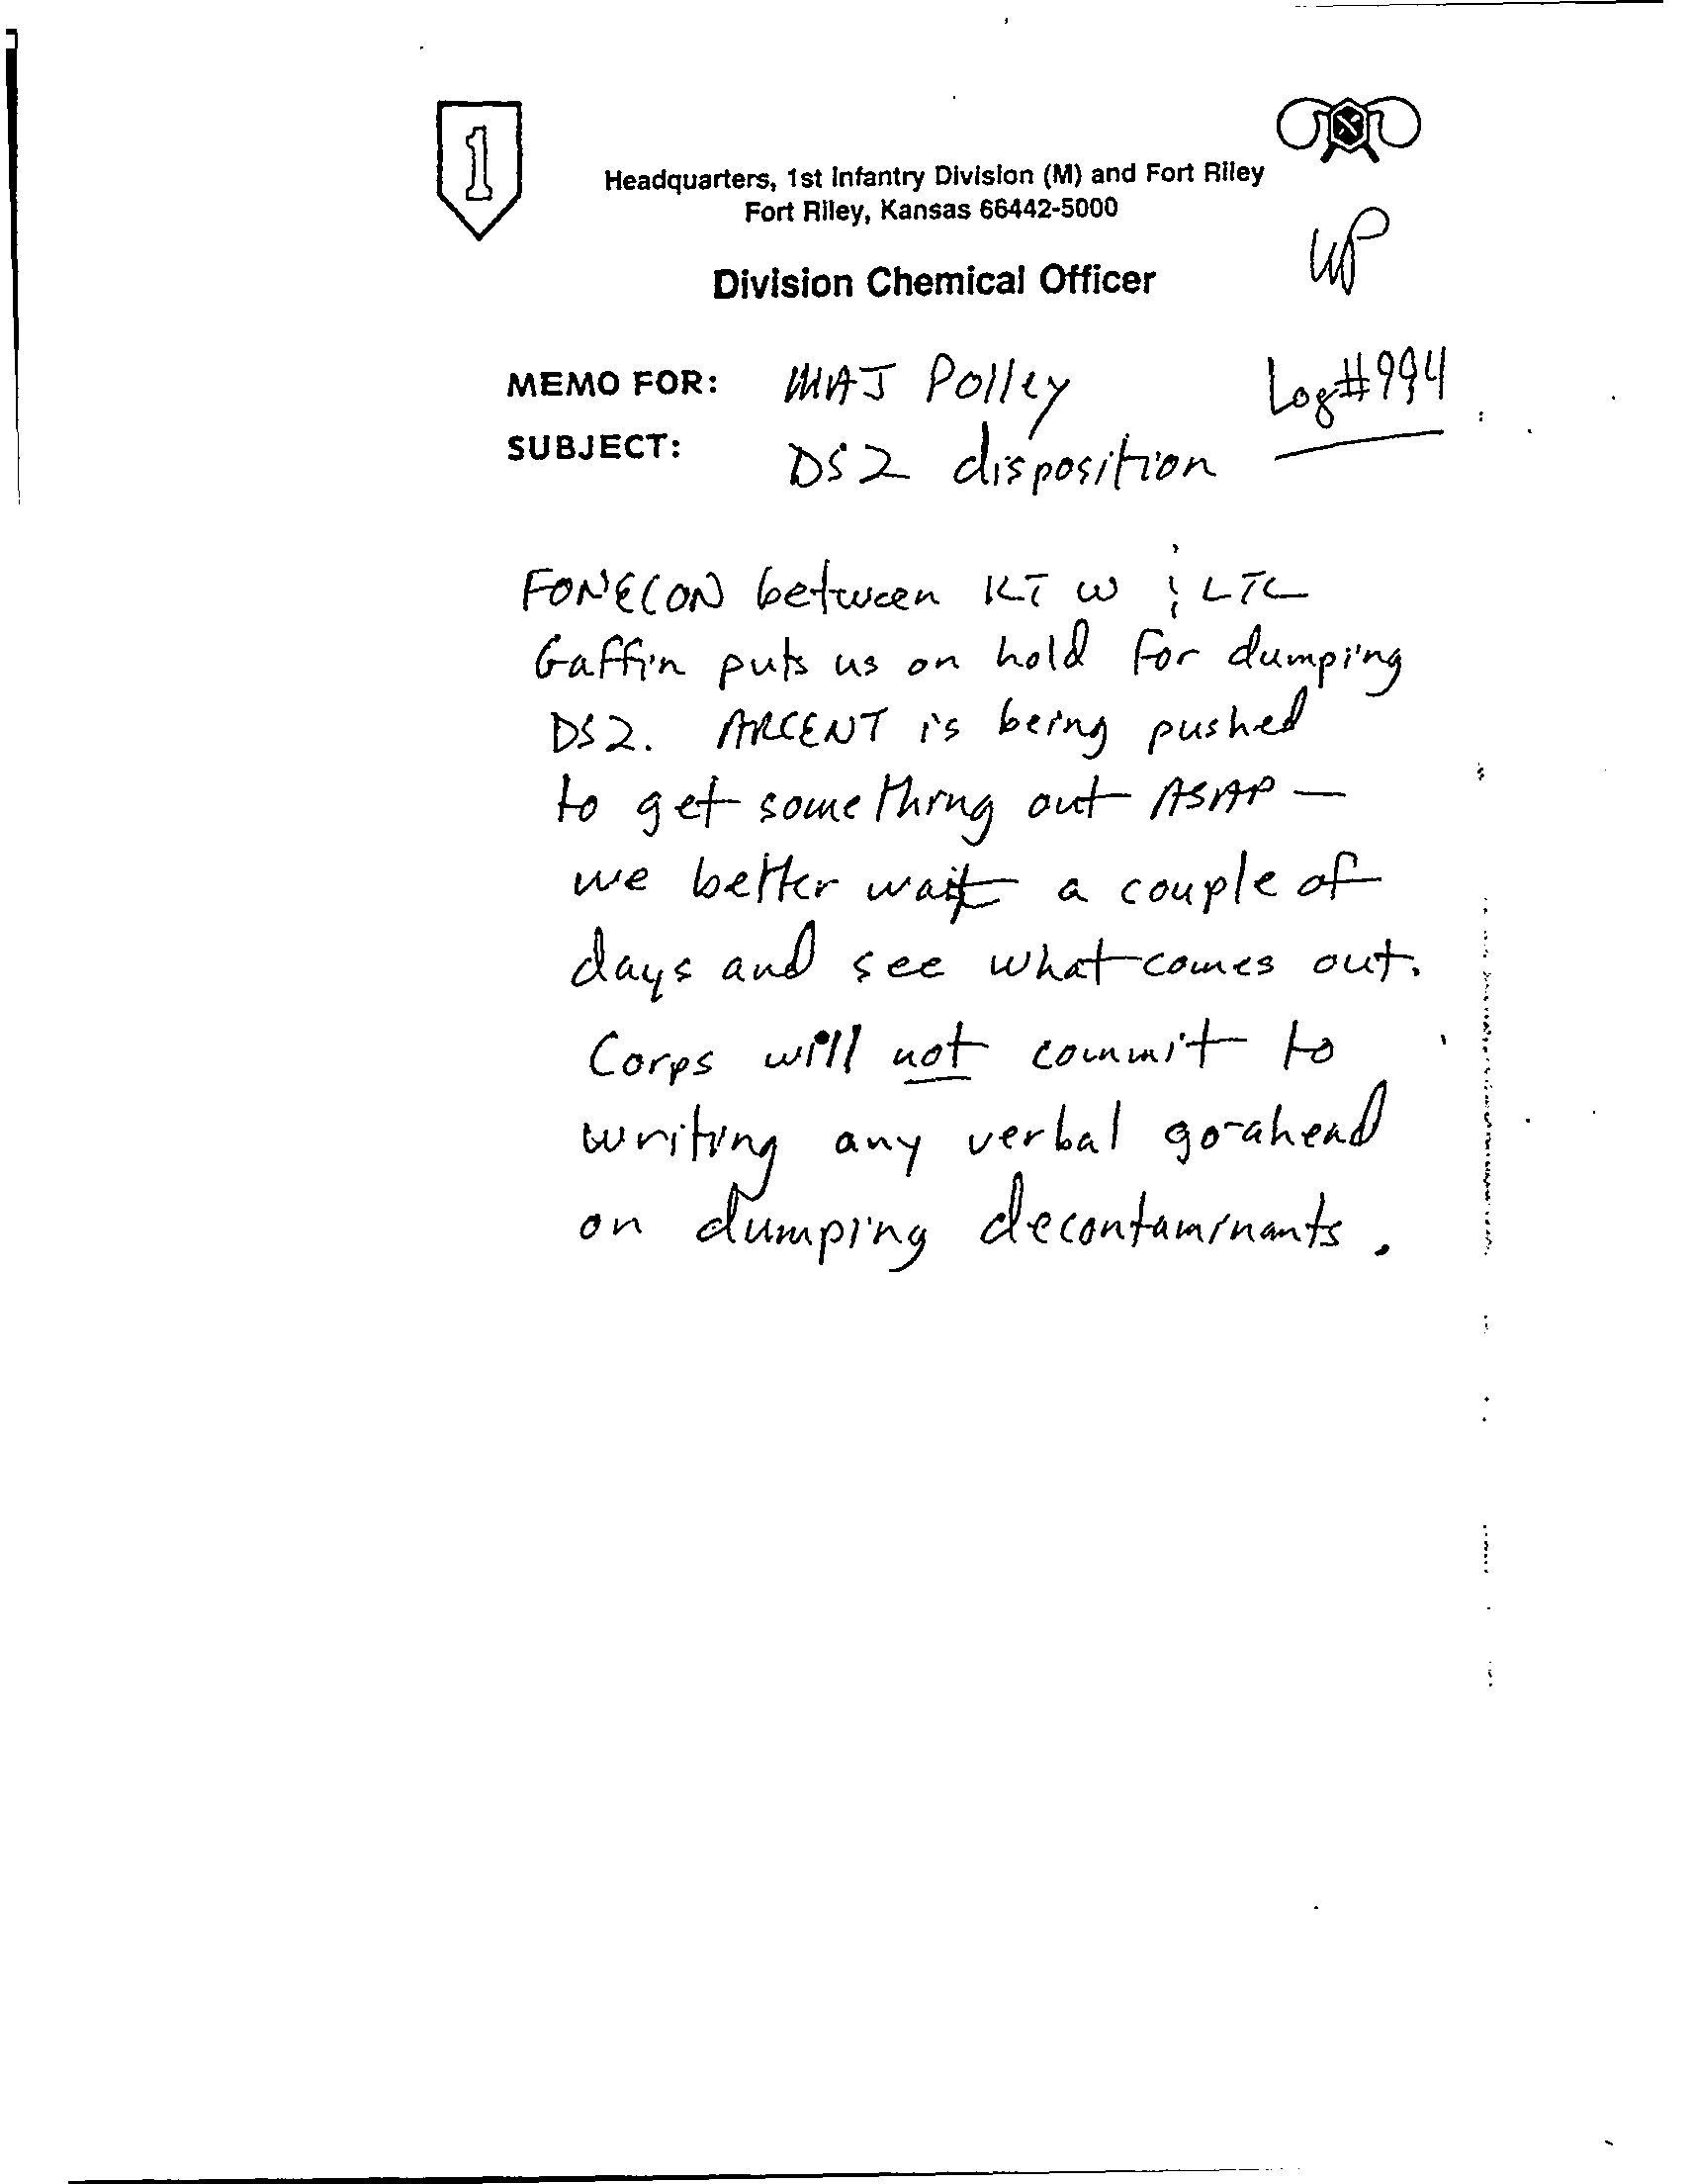 1
Headquarters, 1st Infantry Division (M) and Fort Riley
Fort Riley, Kansas 66442-5000
Division Chemical Officer
WP
MEMO FOR: MAJ Polley Log#994
SUBJECT: DS2 disposition
FONECON between KTW & LTC
Gaffin puts us on hold for dumping
DS2. ARCENT is being pushed
to get something out ASAP —
we better wait a couple of
days and see what comes out.
Corps will not commit to
writing any verbal go-ahead
on dumping decontaminants.